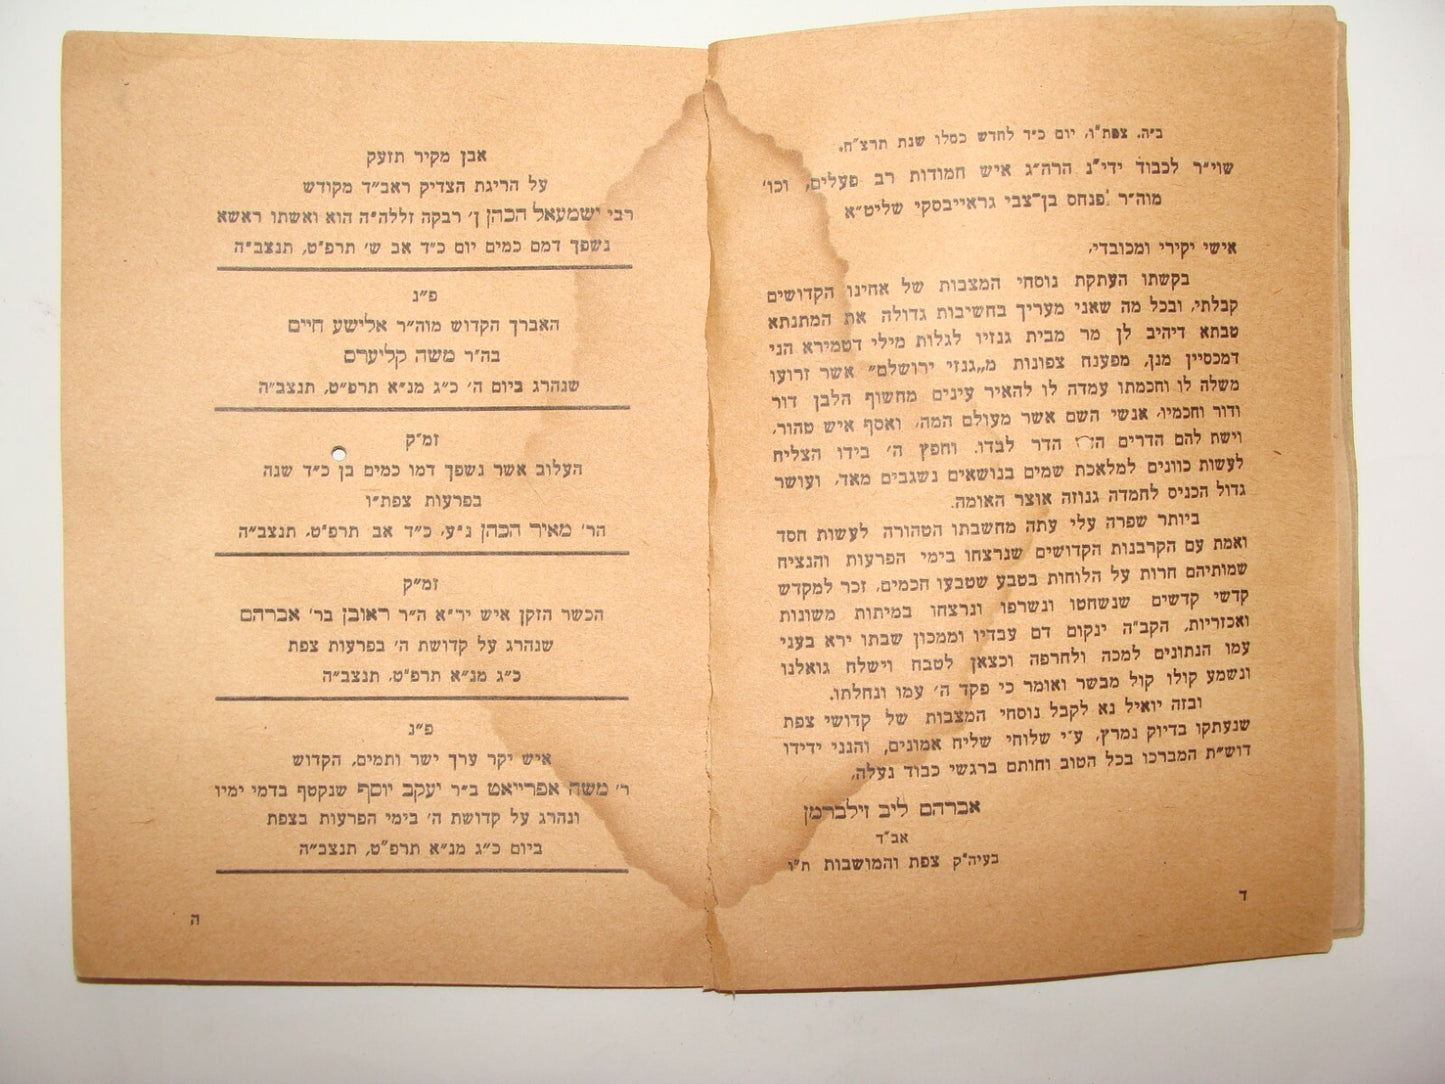 ב״ה. צפת״ו, יום כ״ד לחדש כסלו שנת תרצ״ח.
שוי״ר לכבוד ידי״נ הרה״ג איש חמודות רב פעלים, וכו׳
מוה״ר פנחס בן־צבי גראייבסקי שליט״א
אישי יקירי ומכובדי,
בקשתו העתקת נוסחי המצבות של אחינו הקדושים
קבלתי, ובכל מה שאני מעריך בחשיבות גדולה את המתנתא
טבתא דיהיב לן מר מבית גנזיו לגלות מילי דטמירא הני
דמכסיין מנן, מפענח צפונות מ„גנזי ירושלם״ אשר זרועו
משלה לו וחכמתו עמדה לו להאיר עינים מחשוף הלבן דור
ודור וחכמיו, אנשי השם אשר מעולם המה, ואסף איש טהור,
וישת להם הדרים הוד הדר לבדו. וחפץ ה׳ בידו הצליח
לעשות כוונים למלאכת שמים בנושאים נשגבים מאד, ועושר
גדול הכניס לחמדה גנוזה אוצר האומה.
ביותר שפרה עלי עתה מחשבתו הטהורה לעשות חסד
ואמת עם הקרבנות הקדושים שנרצחו בימי הפרעות והנציח
שמותיהם חרות על הלוחות בטבע שטבעו חכמים, זכר למקדש
קדשי קדשים שנשחטו ונשרפו ונרצחו במיתות משונות
ואכזריות, הקב״ה ינקום דם עבדיו וממכון שבתו ירא בעני
עמו הנתונים למכה ולחרפה וכצאן לטבח וישלח גואלנו
ונשמע קולו קול מבשר ואומר כי פקד ה׳ עמו ונחלתו.
ובזה יואיל נא לקבל נוסחי המצבות של קדושי צפת
שנעתקו בדיוק נמרץ, ע״י שלוחי שליח אמונים, והנני ידידו
דוש״ת המברכו בכל הטוב וחותם ברגשי כבוד נעלה,
אברהם ליב זילברמן
אב״ד
בעיה״ק צפת והמושבות ת״ו
ד
אבן מקיר תזעק
על הריגת הצדיק ראב״ד מקודש
רבי ישמעאל הכהן ן׳ רבקה זללה״ה הוא ואשתו ראשא
נשפך דמם כמים יום כ״ד אב ש׳ תרפ״ט, תנצב״ה
פ״נ
האברך הקדוש מוה״ר אלישע חיים
בה״ר משה קליערס
שנהרג ביום ה׳ כ״ג מנ״א תרפ״ט, תנצב״ה
זמ״ק
העלוב אשר נשפך דמו כמים בן כ״ד שנה
בפרעות צפת״ו
הר׳ מאיר הכהן נ״ע, כ״ד אב תרפ״ט, תנצב״ה
זמ״ק
הכשר הזקן איש יר״א ה״ר ראובן בר׳ אברהם
שנהרג על קדושת ה׳ בפרעות צפת
כ״ג מנ״א תרפ״ט, תנצב״ה
פ״נ
איש יקר ערך ישר ותמים, הקדוש
ר׳ משה אפרייאט ב״ר יעקב יוסף שנקטף בדמי ימיו
ונהרג על קדושת ה׳ בימי הפרעות בצפת
ביום כ״ג מנ״א תרפ״ט, תנצב״ה
ה